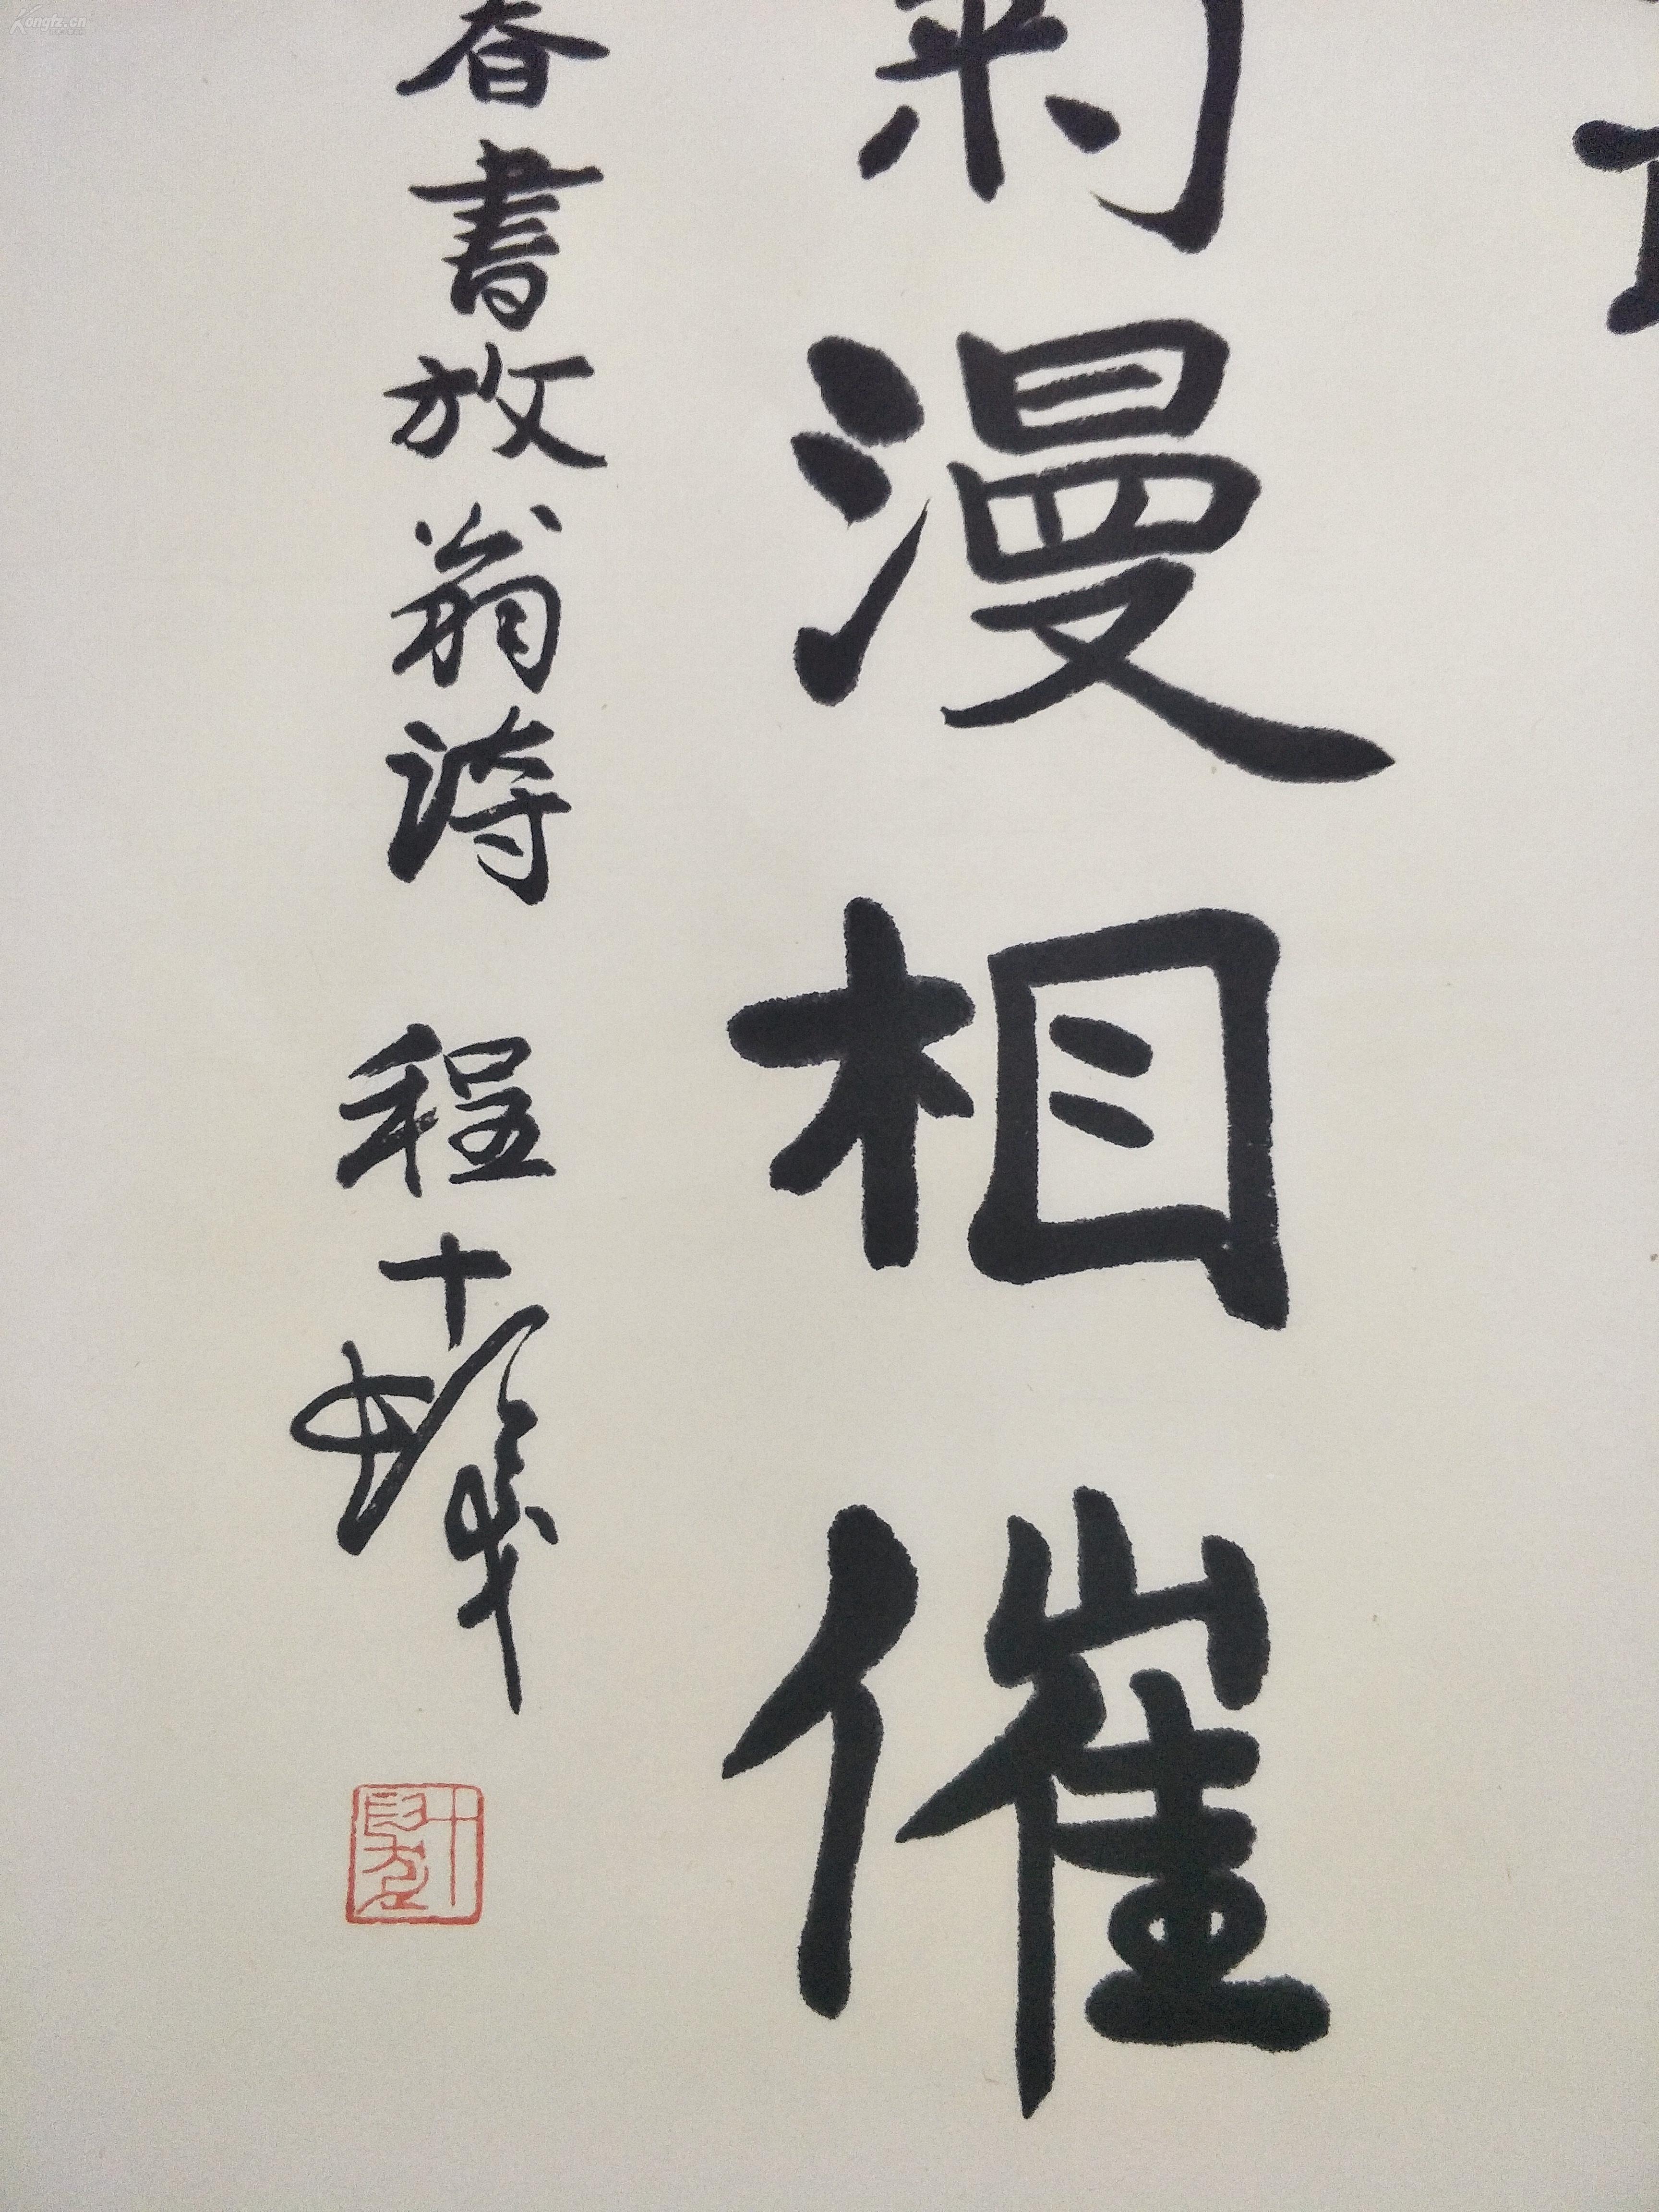 菊漫相催
春書放翁詩 程十髮
十髮
Kongfz.cn